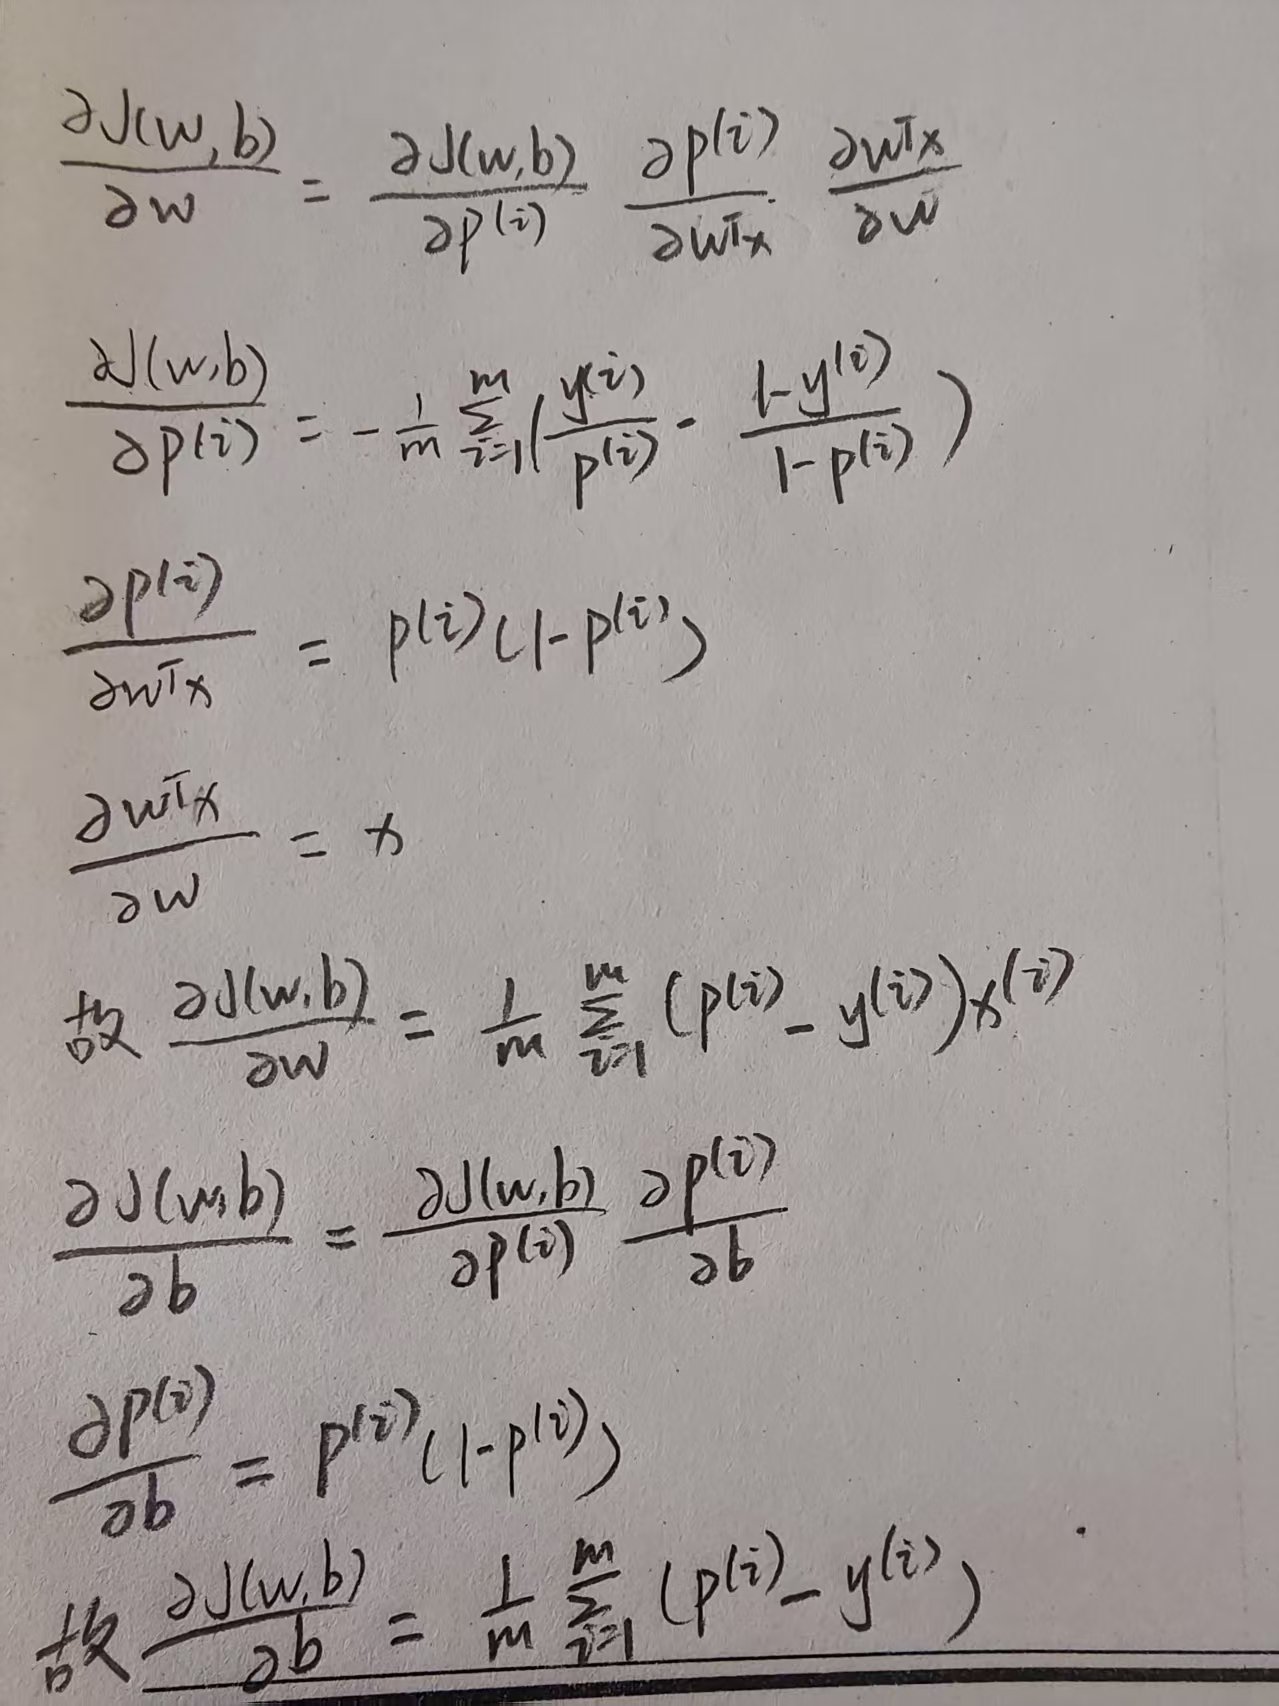 ∂J(w,b)/∂w = ∂J(w,b)/∂p^(i) ∂p^(i)/∂w^Tx ∂w^Tx/∂w
∂J(w,b)/∂p^(i) = -1/m Σ_{i=1}^m (y^(i)/p^(i) - (1-y^(i))/(1-p^(i)))
∂p^(i)/∂w^Tx = p^(i)(1-p^(i))
∂w^Tx/∂w = x
故 ∂J(w,b)/∂w = 1/m Σ_{i=1}^m (p^(i) - y^(i))x^(i)
∂J(w,b)/∂b = ∂J(w,b)/∂p^(i) ∂p^(i)/∂b
∂p^(i)/∂b = p^(i)(1-p^(i))
故 ∂J(w,b)/∂b = 1/m Σ_{i=1}^m (p^(i) - y^(i))